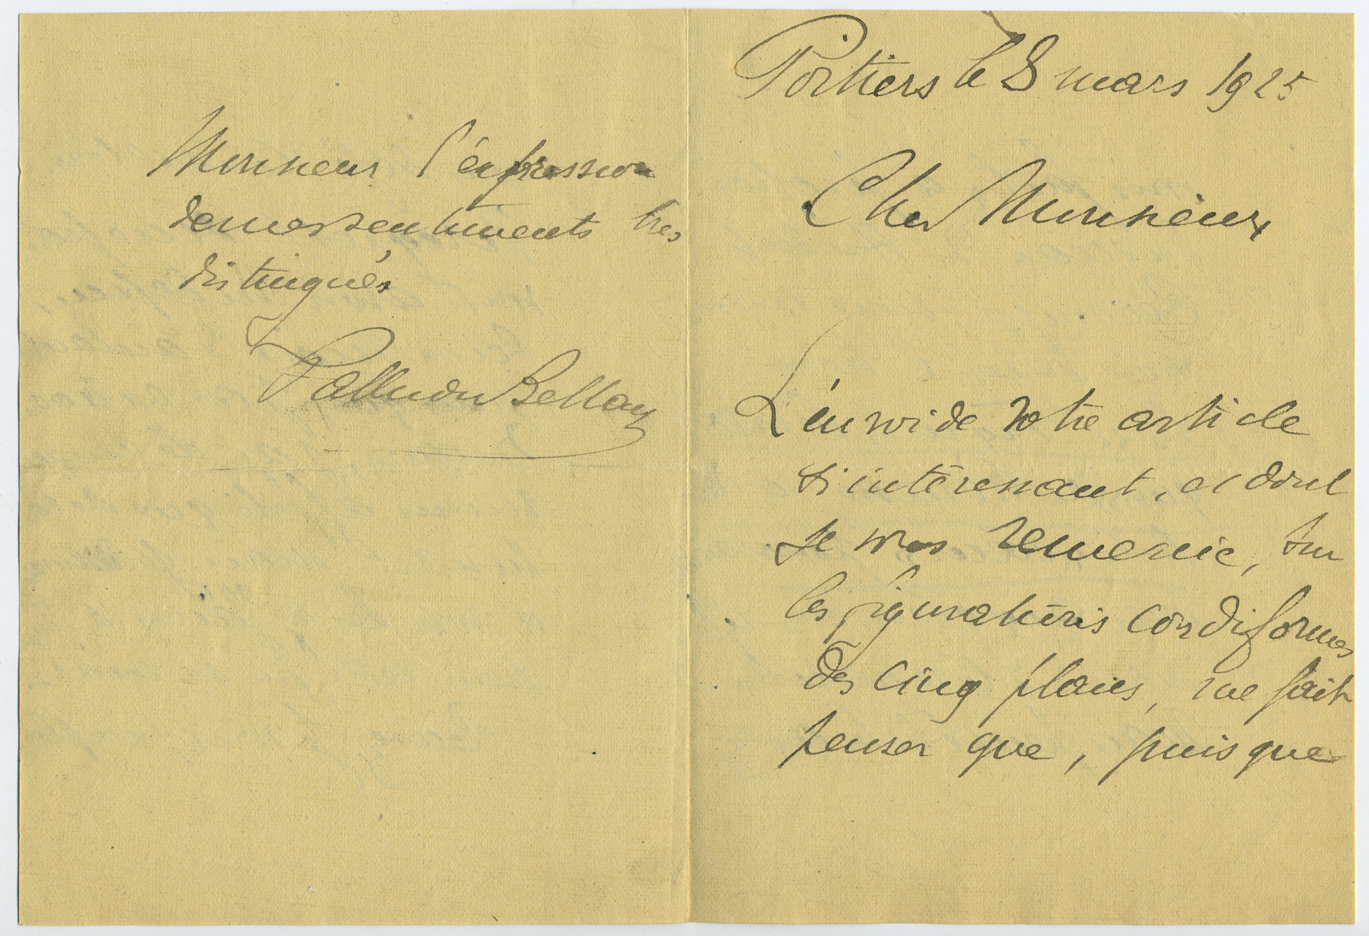 Poitiers le 8 mars 1925
Cher Monsieur
L'envoi de votre article
si intéressant, et dont
je vous remercie, sur
les figurations cordiformes
des cinq plaies, me fait
penser que, puisque
Monsieur l'expression
de mes sentiments très
distingués
Pallu du Bellay